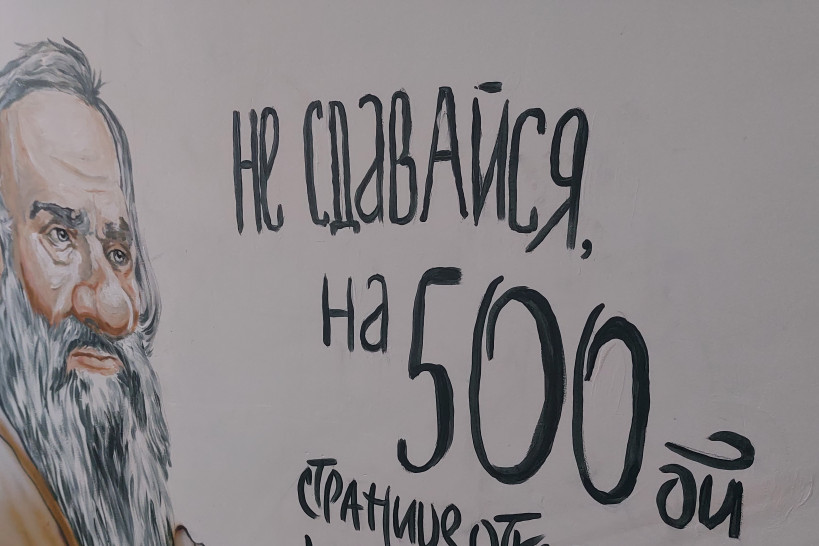 не сдавайся,
на 500
ой
странице отк